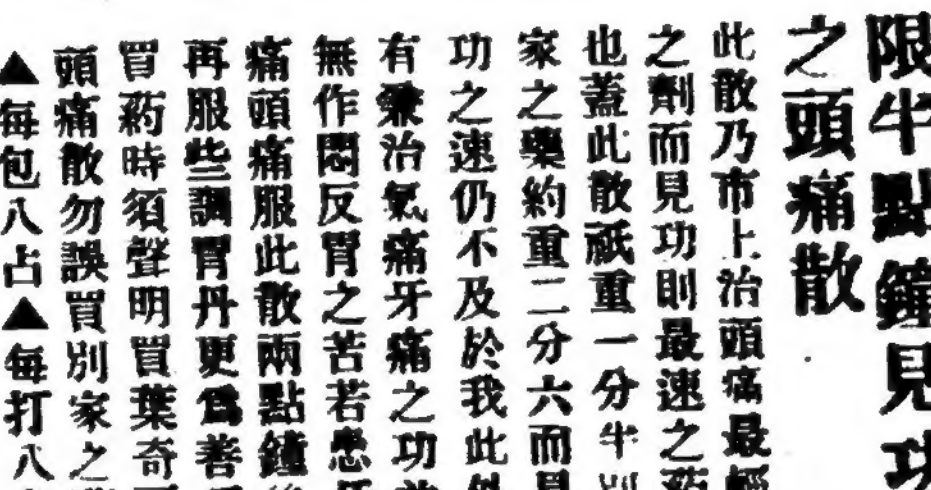 限半點鐘見功
之頭痛散
此散乃市上治頭痛最輕
之劑而見功則最速之葯
也蓋此散祇重一分半別
家之藥約重二分六而見
功之速仍不及於我此
有兼治氣痛牙痛之功
無作悶反胃之苦若患
痛頭痛服此散兩點鐘後
再服些調胃丹更爲善
買葯時須聲明買葉奇
頭痛散勿誤買別家之
▲每包八占▲每打八